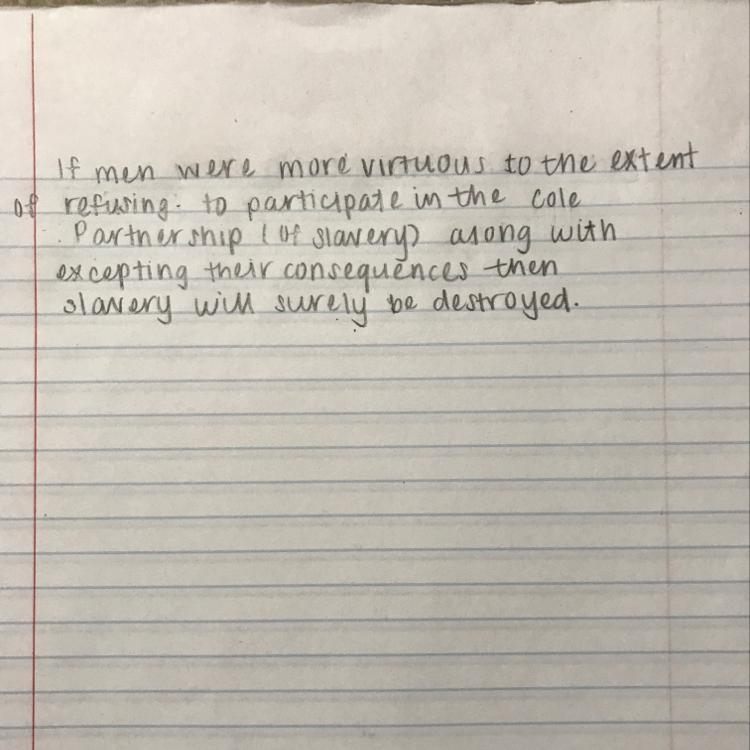 If men were more virtuous to the extent
of refusing. to participate in the cole
Partnership (of slavery) along with
excepting their consequences then
slavery will surely be destroyed.